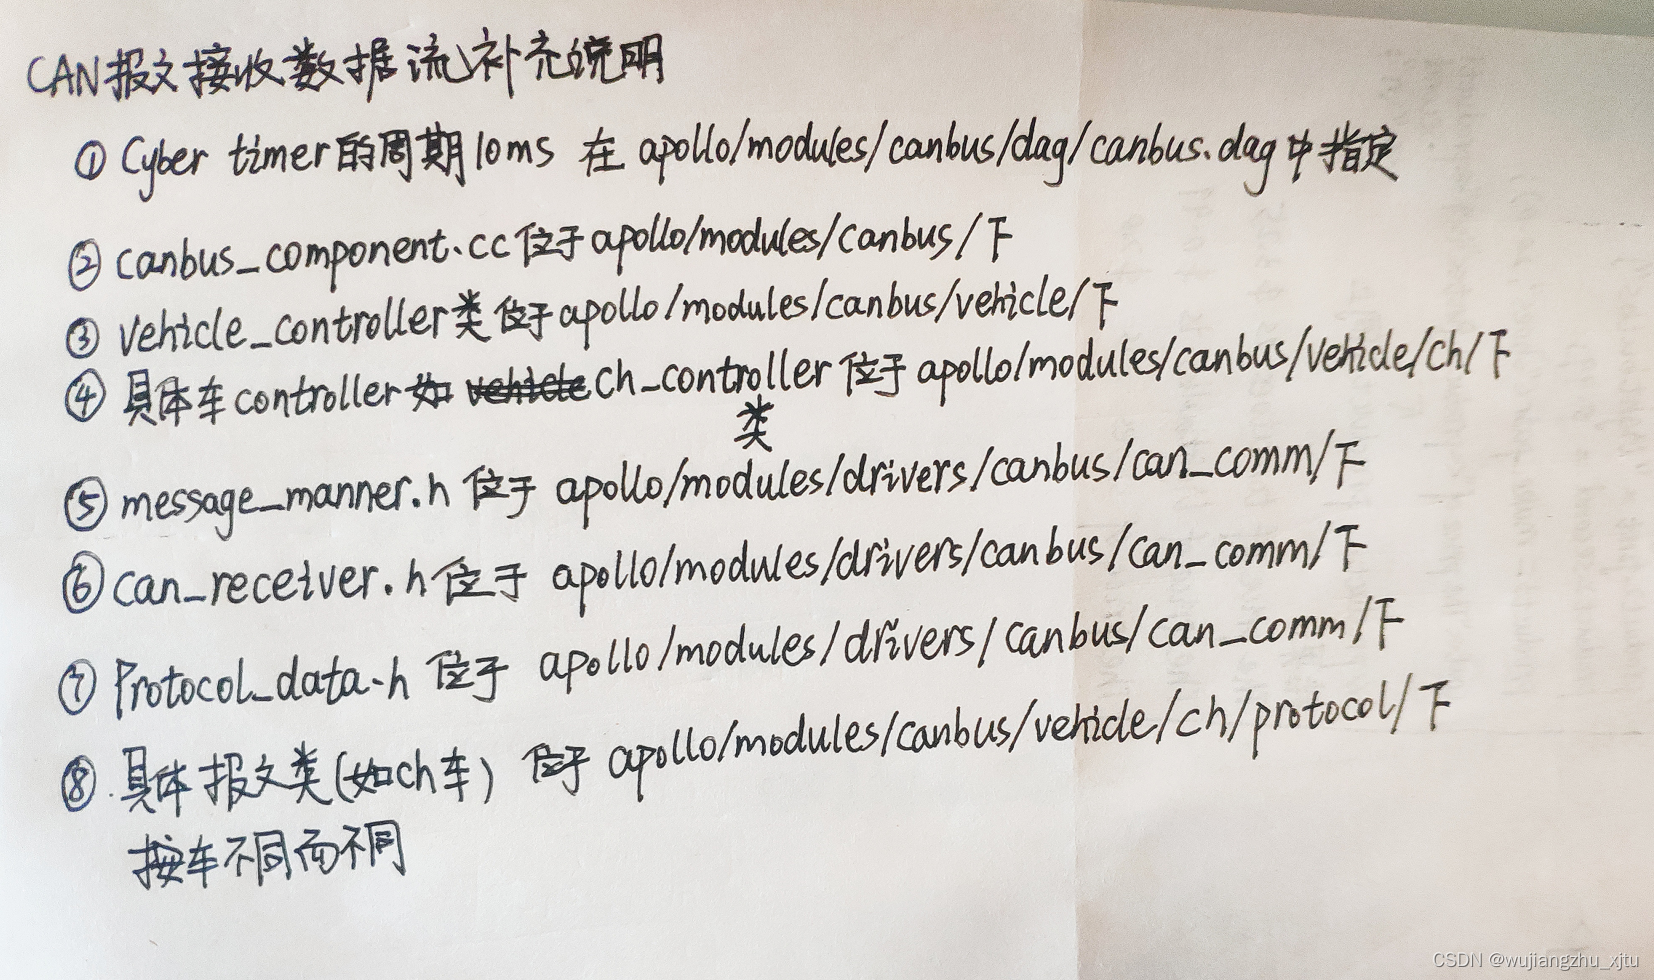 CAN报文接收数据流补充说明
① Cyber timer的周期10ms 在 apollo/modules/canbus/dag/canbus.dag中指定
② canbus_component.cc位于apollo/modules/canbus/下
③ vehicle_controller类位于apollo/modules/canbus/vehicle/下
④ 具体车controller如 vehicle ch_controller 位于apollo/modules/canbus/vehicle/ch/下
类
⑤ message_manner.h 位于 apollo/modules/drivers/canbus/can_comm/下
⑥ can_receiver.h位于 apollo/modules/drivers/canbus/can_comm/下
⑦ Protocol_data.h 位于 apollo/modules/drivers/canbus/can_comm/下
⑧ 具体报文类(如ch车) 位于 apollo/modules/canbus/vehicle/ch/protocol/下
按车不同而不同
CSDN @wujiangzhu_xjtu